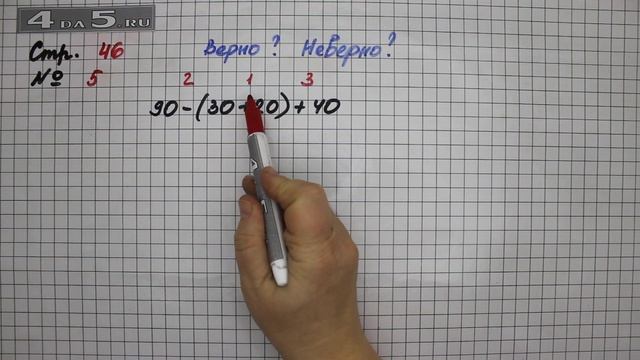 4 DA 5.RU
Стр. 46 Верно? Неверно?
№ 5 2 1 3
90 - (30 + 20) + 40